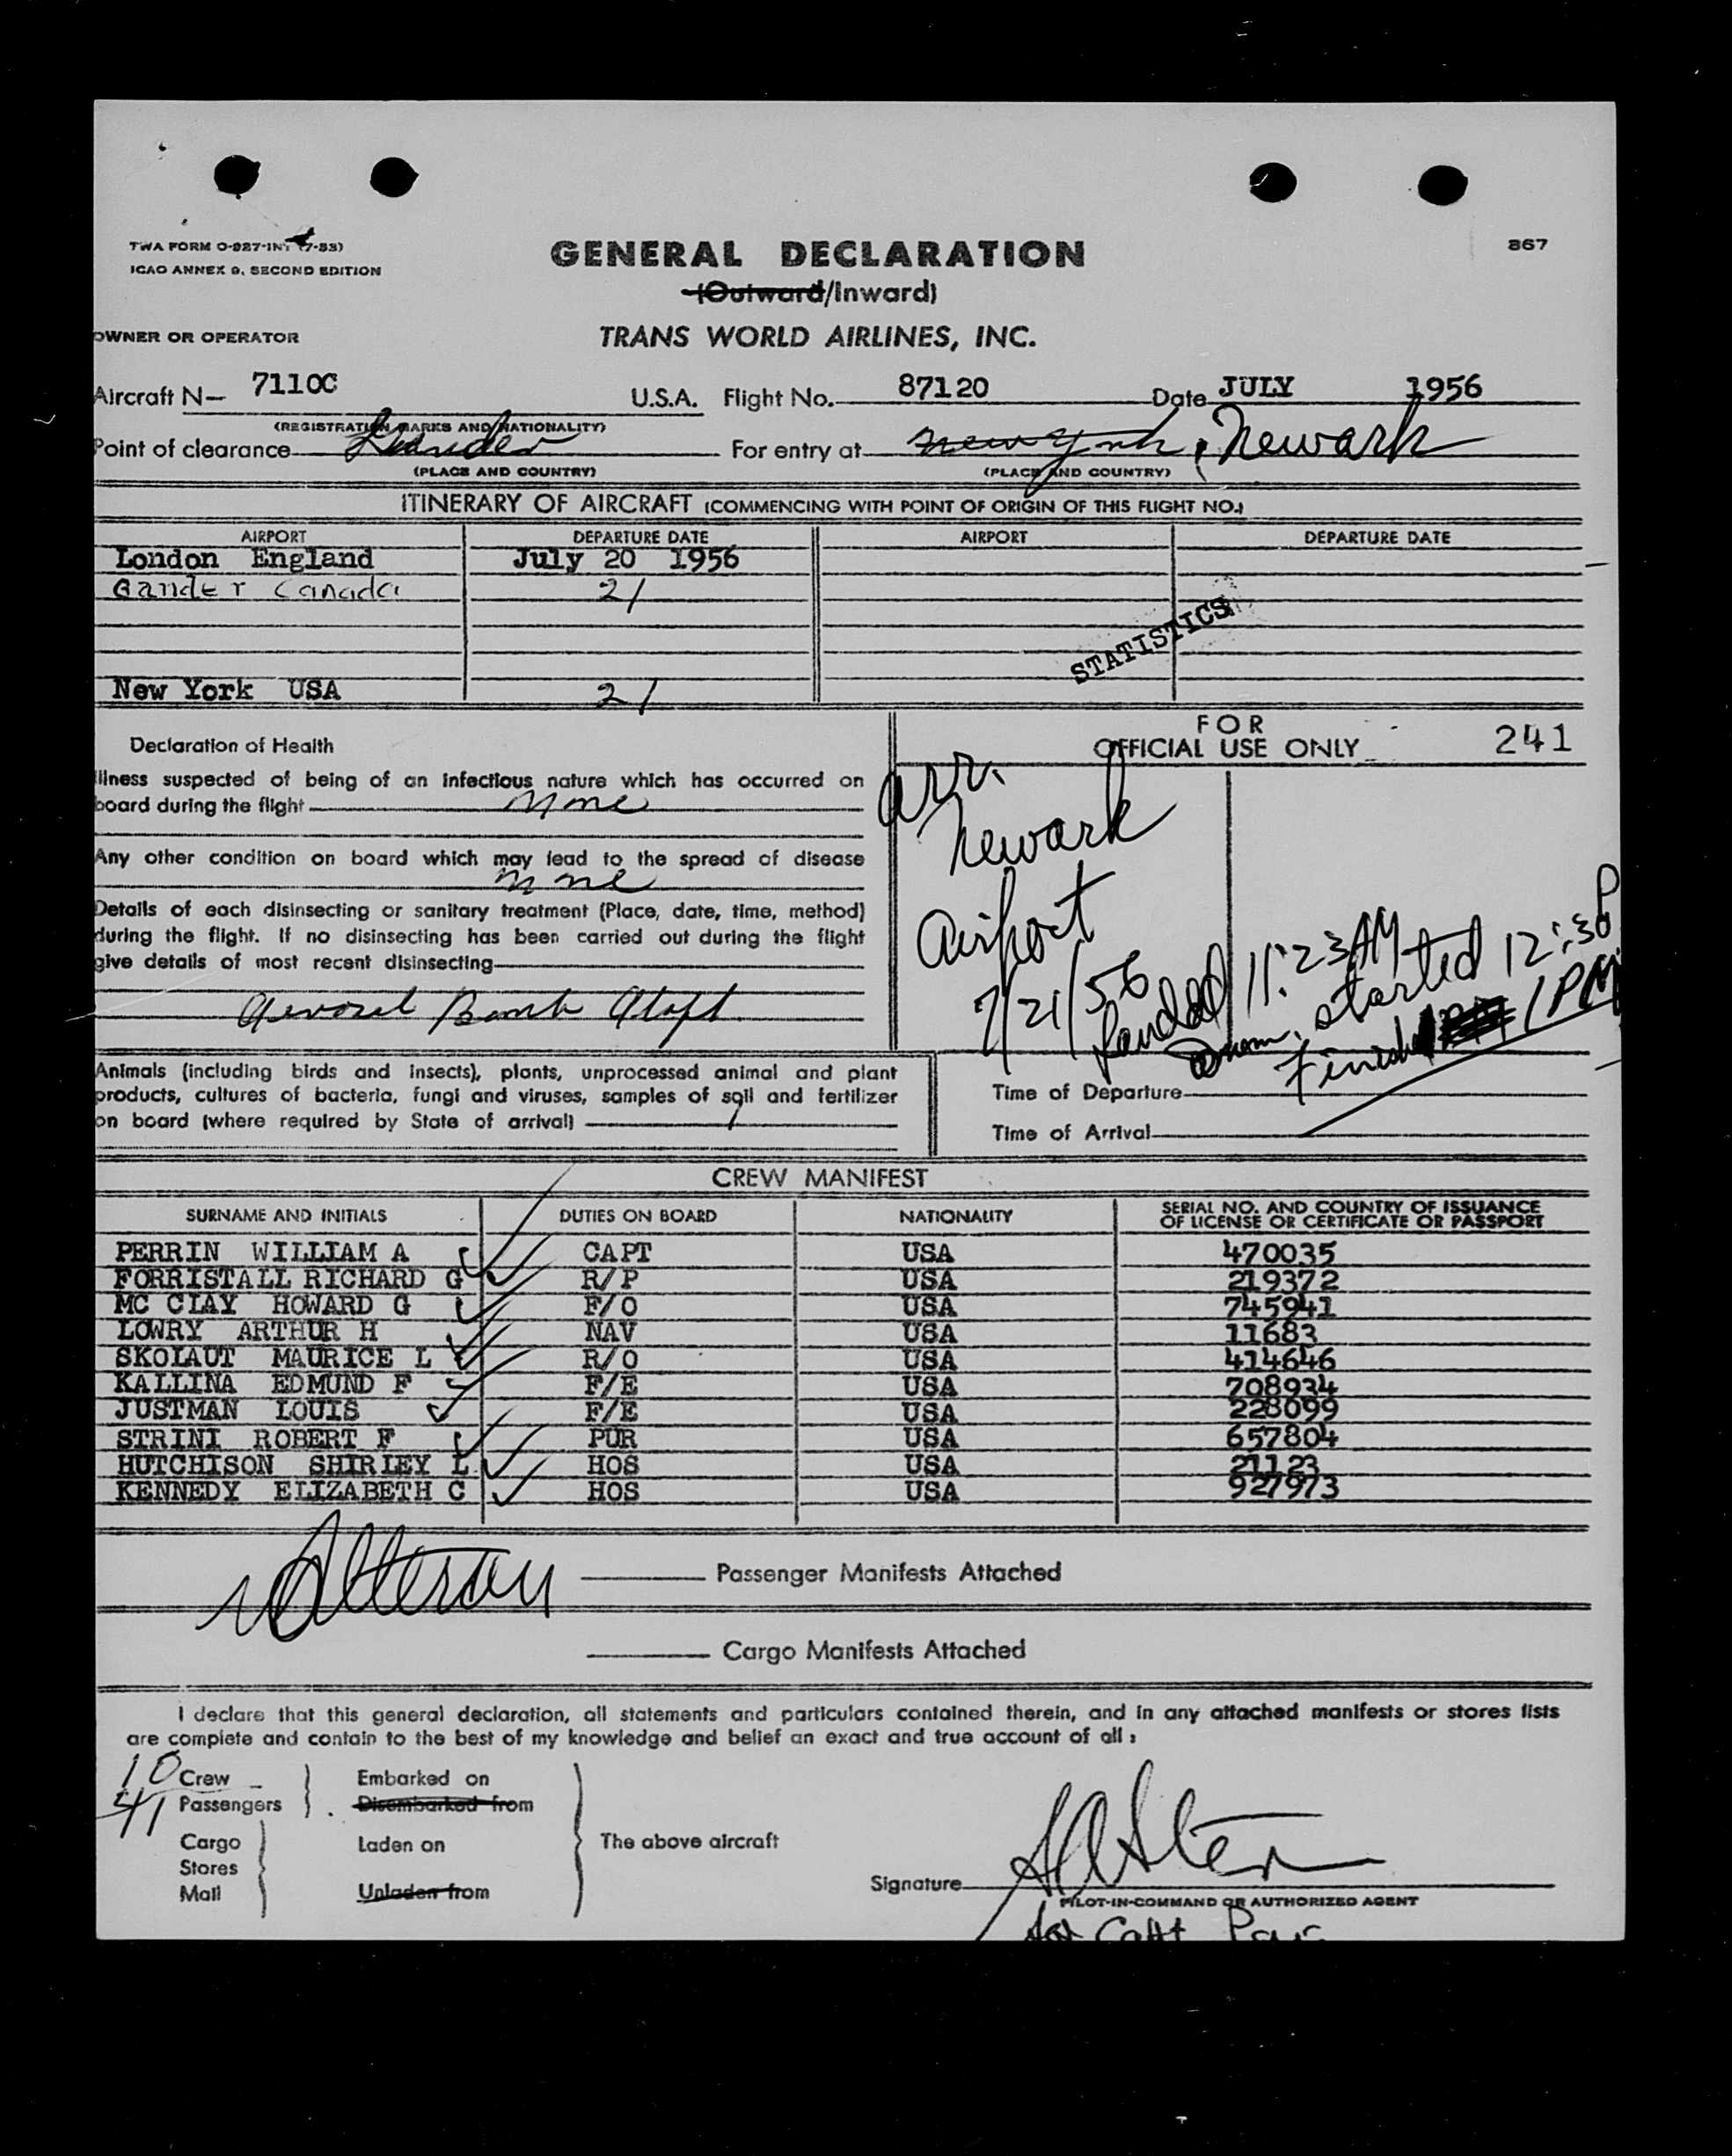 TWA FORM O-927-INT (7-53)
ICAO ANNEX 9, SECOND EDITION
GENERAL DECLARATION
867
(Outward/Inward)
OWNER OR OPERATOR
TRANS WORLD AIRLINES, INC.
Aircraft N- 7110C U.S.A. Flight No. 87120 Date JULY 1956
(REGISTRATION MARKS AND NATIONALITY)
Point of clearance Gander For entry at New York, Newark
(PLACE AND COUNTRY) (PLACE AND COUNTRY)
ITINERARY OF AIRCRAFT (COMMENCING WITH POINT OF ORIGIN OF THIS FLIGHT NO.)
AIRPORT DEPARTURE DATE AIRPORT DEPARTURE DATE
London England July 20 1956
Gander Canada 21
STATISTICS
New York USA 21
FOR
OFFICIAL USE ONLY 241
Declaration of Health
Illness suspected of being of an infectious nature which has occurred on
board during the flight None
Any other condition on board which may lead to the spread of disease
None
Details of each disinsecting or sanitary treatment (Place, date, time, method)
during the flight. If no disinsecting has been carried out during the flight
give details of most recent disinsecting
Aerosol Bomb Aloft
arr.
Newark
Airport
7/21/56
landed 11:23 AM
started 12:30 P
Finished 1 PM
Animals (including birds and insects), plants, unprocessed animal and plant
products, cultures of bacteria, fungi and viruses, samples of soil and fertilizer
on board (where required by State of arrival)
Time of Departure
Time of Arrival
CREW MANIFEST
SURNAME AND INITIALS DUTIES ON BOARD NATIONALITY SERIAL NO. AND COUNTRY OF ISSUANCE
OF LICENSE OR CERTIFICATE OR PASSPORT
PERRIN WILLIAM A CAPT USA 470035
FORRISTALL RICHARD G R/P USA 219372
MC CLAY HOWARD G F/O USA 745941
LOWRY ARTHUR H NAV USA 11683
SKOLAUT MAURICE L R/O USA 414646
KALLINA EDMUND F F/E USA 708934
JUSTMAN LOUIS F/E USA 228099
STRINI ROBERT F PUR USA 657804
HUTCHISON SHIRLEY L HOS USA 21123
KENNEDY ELIZABETH C HOS USA 927973
Passenger Manifests Attached
Cargo Manifests Attached
I declare that this general declaration, all statements and particulars contained therein, and in any attached manifests or stores lists
are complete and contain to the best of my knowledge and belief an exact and true account of all :
10 Crew Embarked on
41 Passengers Disembarked from
Cargo Laden on The above aircraft
Stores
Mail Unladen from
Signature
PILOT-IN-COMMAND OR AUTHORIZED AGENT
for Capt